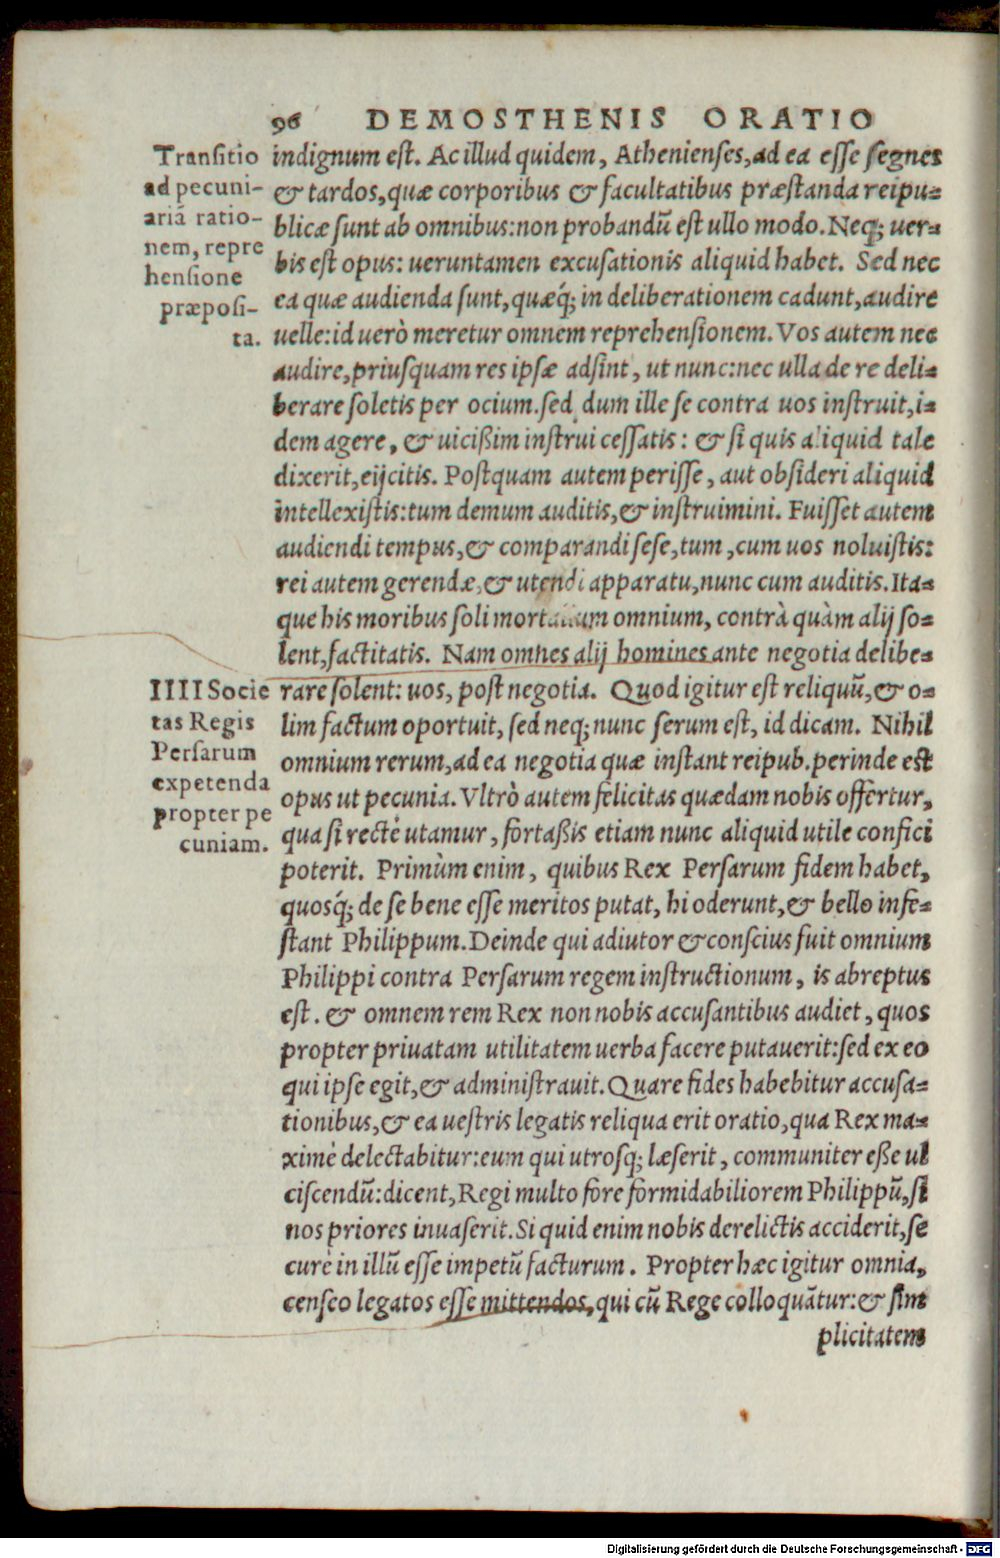 96 DEMOSTHENIS ORATIO
Transitio
ad pecuni-
ariā ratio-
nem, repre
hensione
præposi-
ta.
indignum est. Ac illud quidem, Athenienses, ad ea esse segnes
& tardos, quæ corporibus & facultatibus præstanda reipu-
blicæ sunt ab omnibus: non probandū est ullo modo. Neq; uer-
bis est opus: ueruntamen excusationis aliquid habet. Sed nec
ea quæ audienda sunt, quæq́; in deliberationem cadunt, audire
uelle: id uerò meretur omnem reprehensionem. Vos autem nec
audire, priusquam res ipsæ adsint, ut nunc: nec ulla de re deli-
berare soletis per ocium. sed dum ille se contra uos instruit, i-
dem agere, & uicißim instrui cessatis: & si quis aliquid tale
dixerit, eijcitis. Postquam autem perisse, aut obsideri aliquid
intellexistis: tum demum auditis, & instruimini. Fuisset autem
audiendi tempus, & comparandi sese, tum, cum uos noluistis:
rei autem gerendæ, & utendi apparatu, nunc cum auditis. Ita-
que his moribus soli mortalium omnium, contrà quàm alij so-
lent, factitatis. Nam omnes alij homines ante negotia delibe-
IIII Socie
tas Regis
Persarum
expetenda
propter pe
cuniam.
rare solent: uos, post negotia. Quod igitur est reliquū, & o-
lim factum oportuit, sed neq; nunc serum est, id dicam. Nihil
omnium rerum, ad ea negotia quæ instant reipub. perinde est
opus ut pecunia. Vltrò autem felicitas quædam nobis offertur,
qua si rectè utamur, fortaßis etiam nunc aliquid utile confici
poterit. Primùm enim, quibus Rex Persarum fidem habet,
quosq́; de se bene esse meritos putat, hi oderunt, & bello infe-
stant Philippum. Deinde qui adiutor & conscius fuit omnium
Philippi contra Persarum regem instructionum, is abreptus
est. & omnem rem Rex non nobis accusantibus audiet, quos
propter priuatam utilitatem uerba facere putauerit: sed ex eo
qui ipse egit, & administrauit. Quare fides habebitur accusa-
tionibus, & ea uestris legatis reliqua erit oratio, qua Rex ma-
ximè delectabitur: eum qui utrosq; læserit, communiter eße ul
ciscendū: dicent, Regi multo fore formidabiliorem Philippū, si
nos priores inuaserit. Si quid enim nobis derelictis acciderit, se
curè in illū esse impetū facturum. Propter hæc igitur omnia,
censeo legatos esse mittendos, qui cū Rege colloquātur: & sim
plicitatem
Digitalisierung gefördert durch die Deutsche Forschungsgemeinschaft - DFG